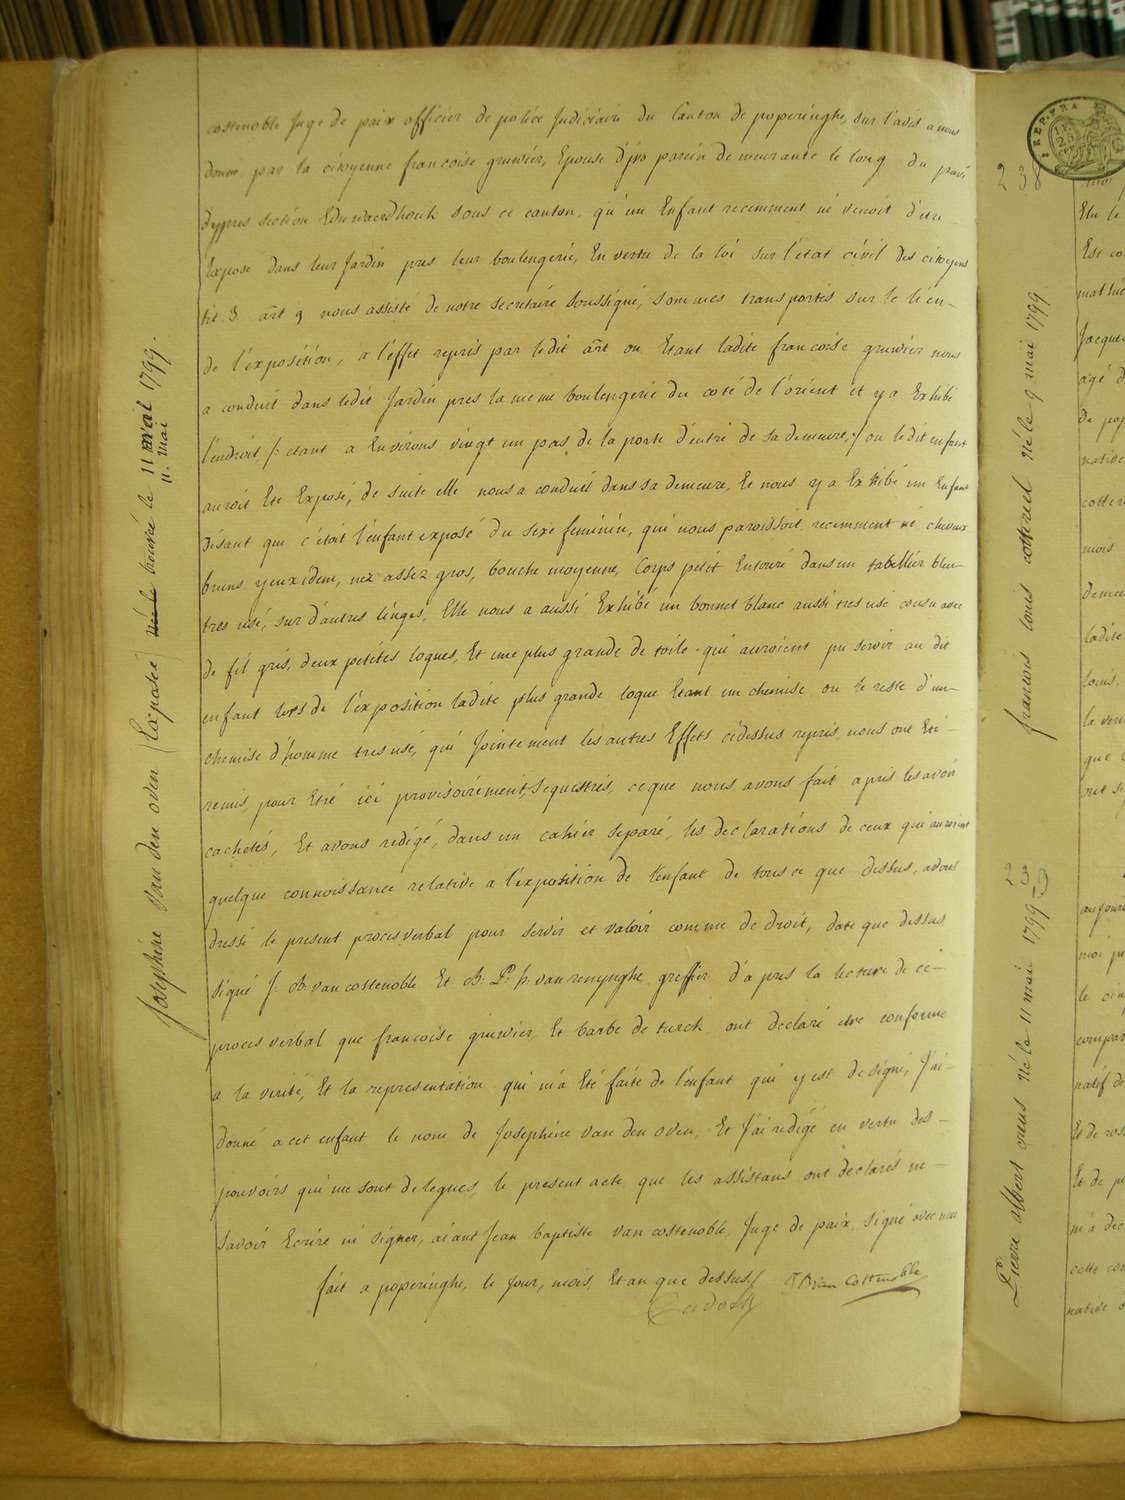 costenoble Juge de paix officier de police Judiciaire du Canton de poperinghe, sur l'avis a nous
donne par la citoyenne francoise gruwier, Epouse d'jvo parein demeurante le long du pavé
d'ypres section Edewaerdhouck sous ce canton, qu'un Enfant recemment né venoit d'etre
Exposé dans leur Jardin pres leur boulengerie, En vertu de la loi sur l'état civil des citoyens
tit. 3 art 9 nous assisté de notre secretaire soussigné, sommes transportés sur le lieu
de l'exposition, a l'effet repris par ledit art ou Etant ladite francoise gruwier nous
a conduit dans ledit Jardin pres la meme boulengerie du coté de l'orient et y a Exhibé
l'endroit /: etant a Environs vingt un pas de la porte d'entré de sa demeure :/ ou ledit enfant
auroit Eté Exposé, de suite elle nous a conduit dans sa demeure, Et nous y a Exhibé un Enfant
disant que c'étoit l'enfant exposé du sexe feminin, qui nous paroissoit recemment né cheveux
bruns, yeux idem, nez assez gros, bouche moyenne, Corps petit Entouré dans un tabellier bleu
tres usé, sur d'autres linges, Elle nous a aussi Exhibé un bonnet blanc aussi tres usé cousu avec
de fil gris, deux petites loques, Et une plus grande de toile qui auroient pu servir au dit
enfant lors de l'exposition ladite plus grande loque Etant un chemise ou le reste d'un
chemise d'homme tres usé, qui Jointement les autres Effets cidessus repris, nous ont Eté
remis, pour Etre ici provisoirement Sequestrés, ce que nous avons fait apris les avoir
cachetés, Et avons redigé, dans un cahier separé, les declarations de ceux qui auroient
quelque connoissance relative a l'exposition de l'enfant de tous ce que dessus, avons
dressé le present proces verbal pour servir et valoir comme de droit, date que dessus
signé J: B: van costenoble Et B: P: h: van renynghe greffier d'apres la lecture de ce
proces verbal que francoise gruwier, Et barbe de turck, ont declaré etre conforme
a la verité, Et la representation qui m'a Eté faite de l'enfant qui y est designé, J'ai
donné a cet enfant le nom de Josephine van den oven, Et J'ai redigé en vertu des
pouvoirs qui me sont delegues, le present acte, que les assistans ont declarés ne
savoir Ecrire ni signer, aiant Jean baptiste van costenoble, Juge de paix, signé avec moi
fait a poperinghe, le Jour, mois Et an que dessus
J B van Costenoble
Josephine van den oven (Exposée) née le trouvée le 11 mai 1799.
11. Mai
238
francois louis cottereel né le 9 mai 1799
239
Pierre albert né le 11 mai 1799
REP. FRA
Elu le
Est co
Jacques
agé d
De pop
native
mois
demeu
ladite
louis,
la ven
que
aujour
moi
le
compar
natif de
Et de
Et de
m'a dec
cette
native